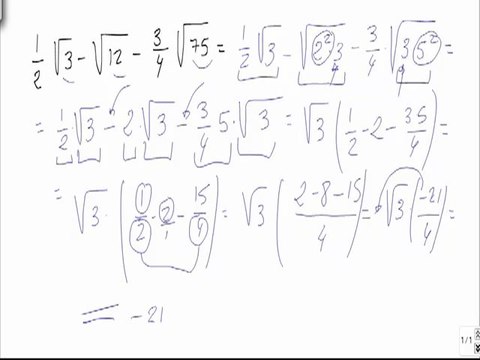 1/2 √3 - √12 - 3/4 √75 = 1/2 √3 - √(2²·3) - 3/4 · √(3·5²) =
= 1/2 · √3 - 2 · √3 - 3/4 5 · √3 = √3 (1/2 - 2 - 3·5/4) =
= √3 · (1/2 - 2/1 - 15/4) = √3 ( (2-8-15)/4 ) = √3 (-21/4) =
= -21
1/1